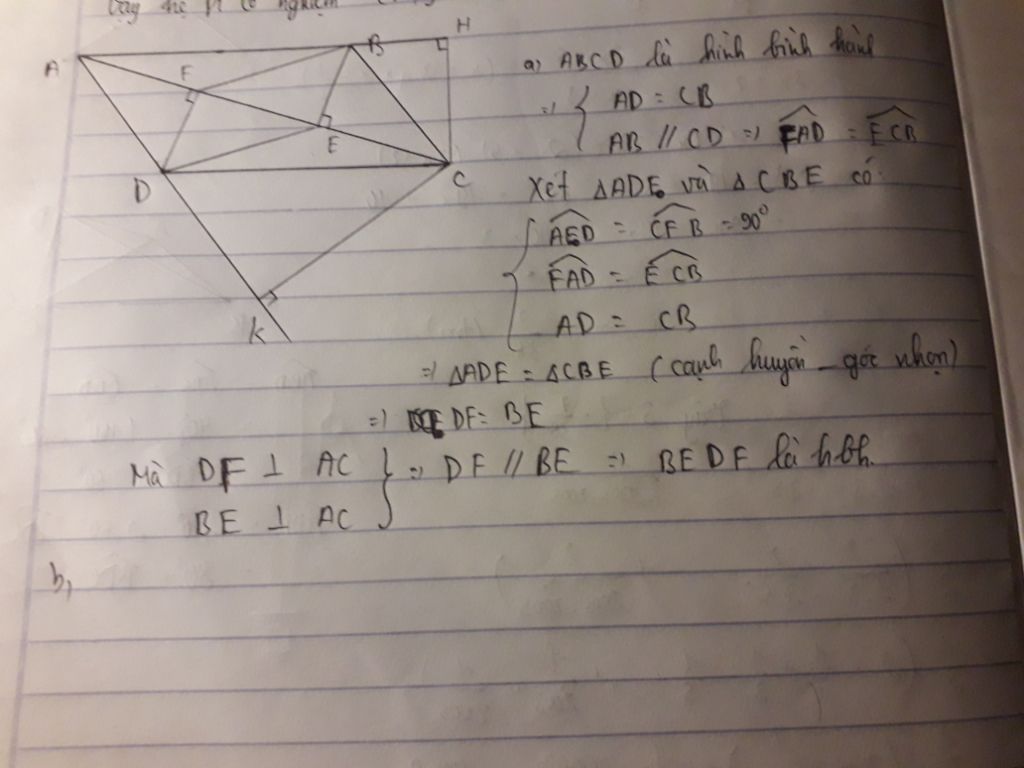 Vậy hệ pt có nghiệm
A
F
B
H
E
D
C
K
a, ABCD là hình bình hành
=> { AD = CB
AB // CD => FAD = ECB
Xét ΔADE và ΔCBE có:
AED = CFB = 90°
FAD = ECB
AD = CB
=> ΔADE = ΔCBE (cạnh huyền - góc nhọn)
=> DF = BE
Mà DF ⊥ AC } => DF // BE => BEDF là hbh.
BE ⊥ AC
b,